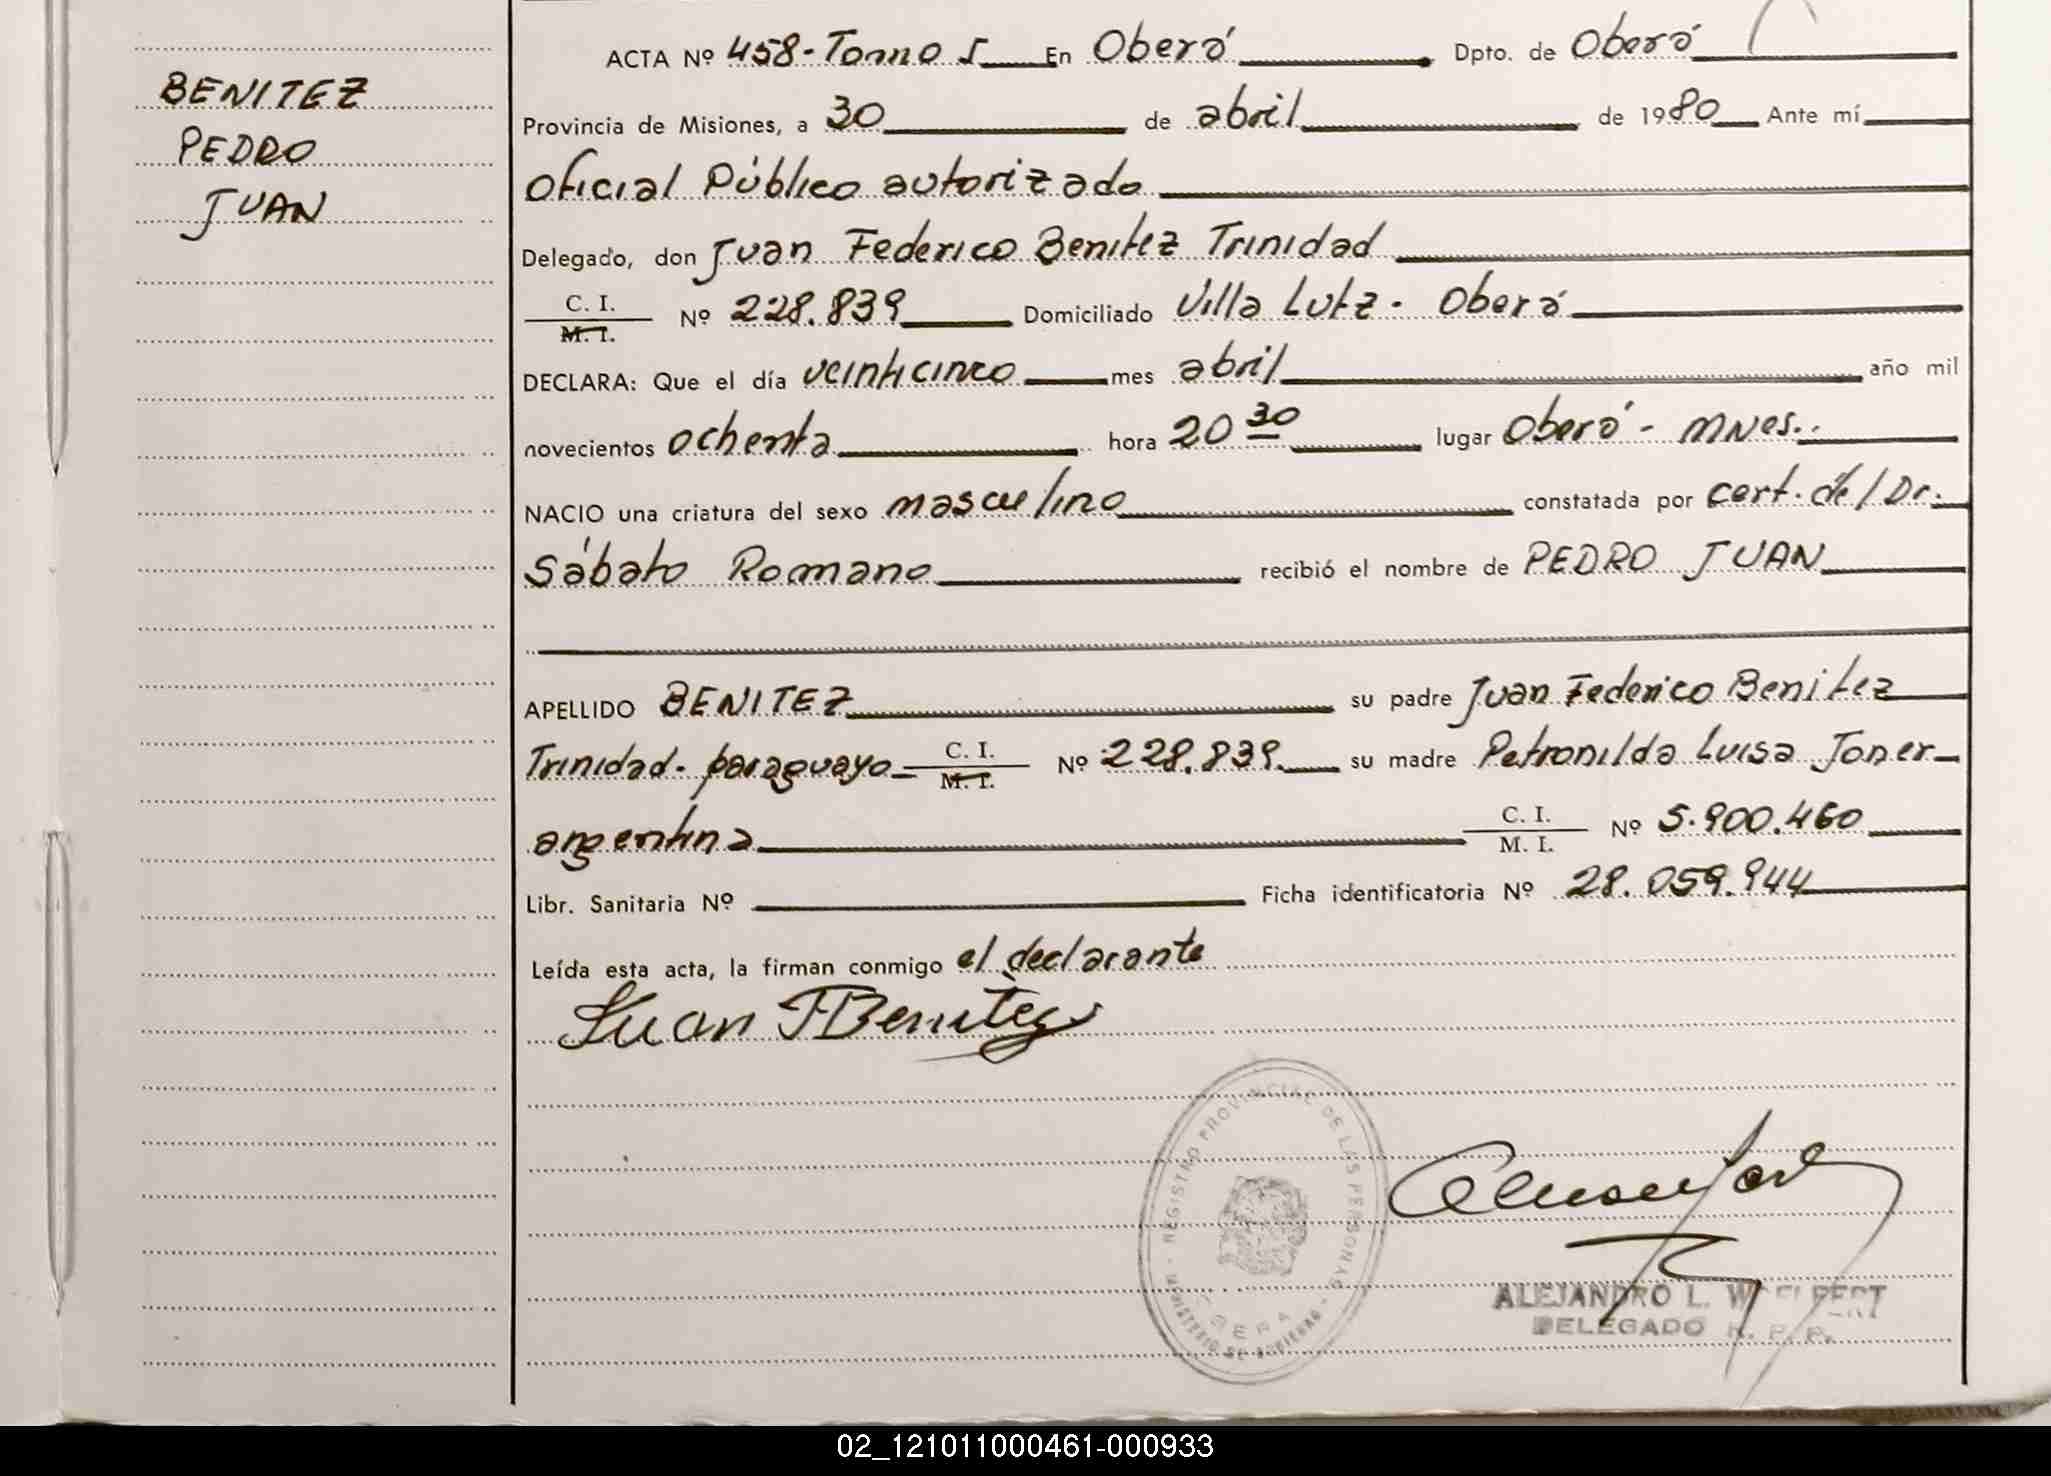 BENITEZ
PEDRO
JUAN
ACTA Nº 458-Tomo I En Oberá Dpto. de Oberá
Provincia de Misiones, a 30 de abril de 1980 Ante mí
Oficial Público autorizado
Delegado, don Juan Federico Benitez Trinidad
C. I.
M. I. Nº 228.839 Domiciliado Villa Lutz - Oberá
DECLARA: Que el día veinticinco mes abril año mil
novecientos ochenta hora 20 30 lugar Oberá - Mnes..
NACIO una criatura del sexo masculino constatada por cert. del Dr.
Sábato Romano recibió el nombre de PEDRO JUAN
APELLIDO BENITEZ su padre Juan Federico Benitez
Trinidad - paraguayo - C. I.
M. I. Nº 228.839. su madre Petronilda Luisa Joner -
argentina C. I.
M. I. Nº 5.900.460
Libr. Sanitaria Nº Ficha identificatoria Nº 28.059.944
Leída esta acta, la firman conmigo el declarante
Juan F Benitez
REGISTRO PROVINCIAL DE LAS PERSONAS
MINISTERIO DE GOBIERNO
OBERA
ALEJANDRO L.
DELEGADO R. P. P.
02_121011000461-000933